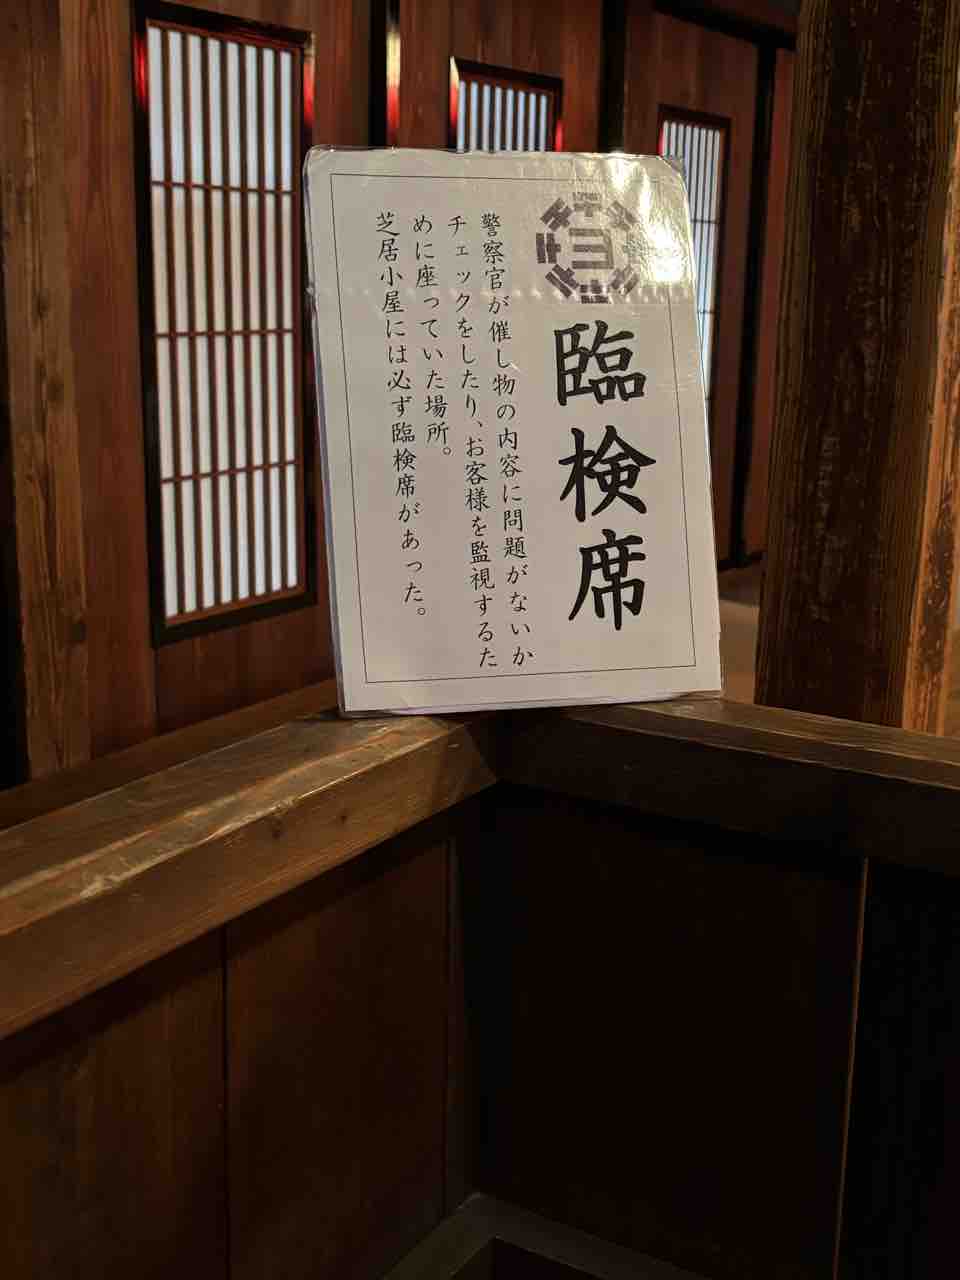 臨検席
警察官が催し物の内容に問題がないか
チェックをしたり、お客様を監視するた
めに座っていた場所。
芝居小屋には必ず臨検席があった。